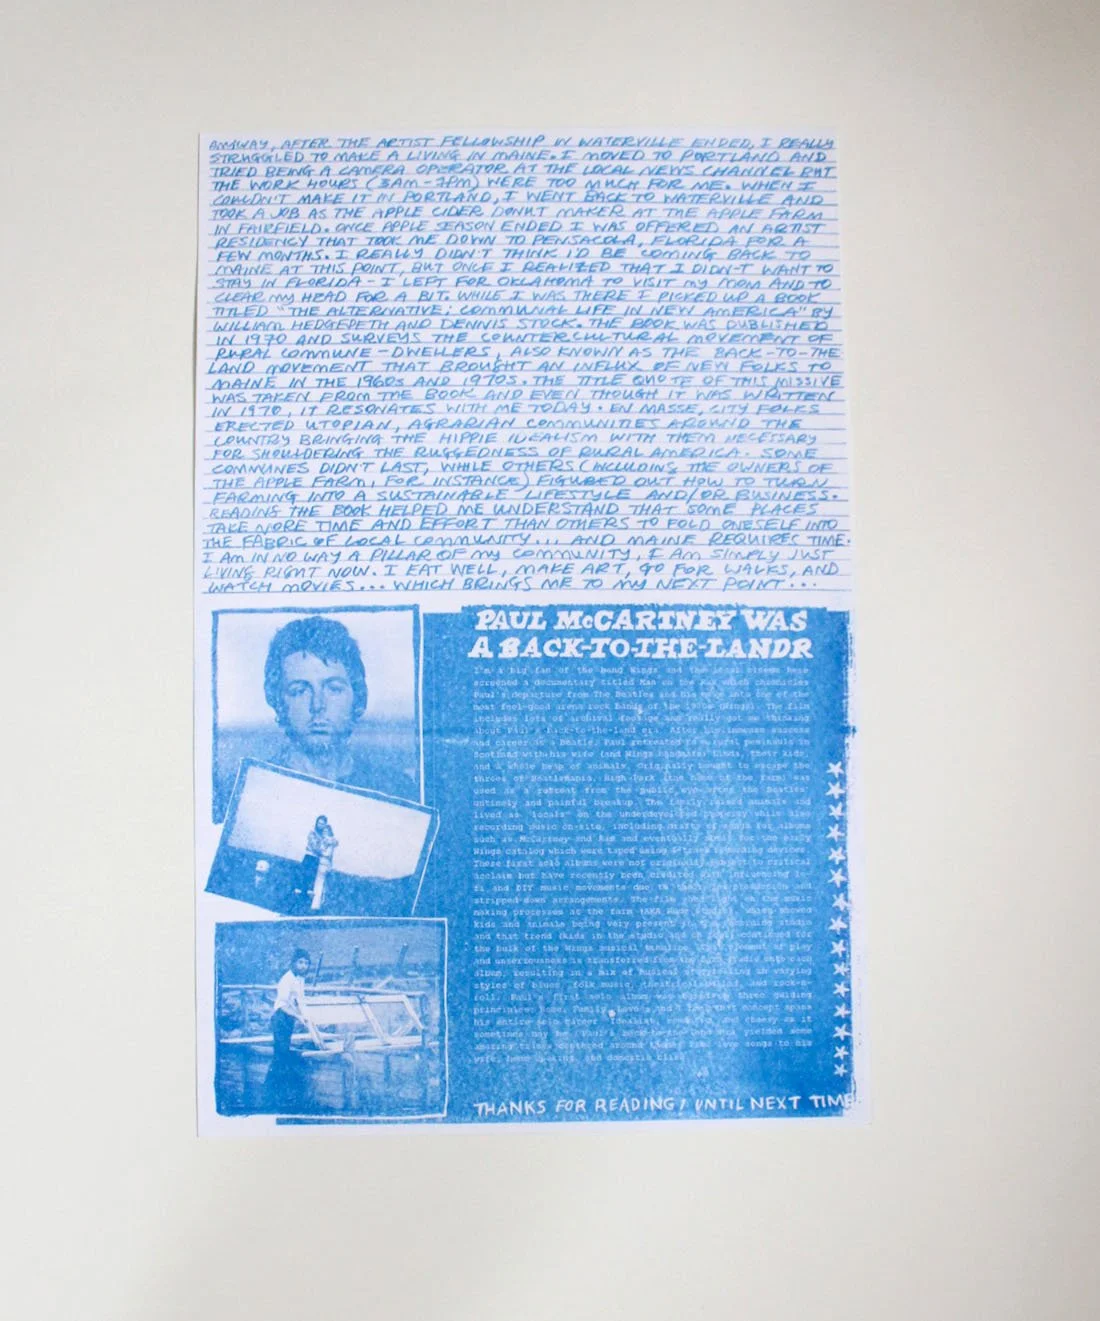 ANYWAY, AFTER THE ARTIST FELLOWSHIP IN WATERVILLE ENDED, I REALLY
STRUGGLED TO MAKE A LIVING IN MAINE. I MOVED TO PORTLAND AND
TRIED BEING A CAMERA OPERATOR AT THE LOCAL NEWS CHANNEL BUT
THE WORK HOURS (3AM - 7PM) WERE TOO MUCH FOR ME. WHEN I
COULDN'T MAKE IT IN PORTLAND, I WENT BACK TO WATERVILLE AND
TOOK A JOB AS THE APPLE CIDER DONUT MAKER AT THE APPLE FARM
IN FAIRFIELD. ONCE APPLE SEASON ENDED I WAS OFFERED AN ARTIST
RESIDENCY THAT TOOK ME DOWN TO PENSACOLA, FLORIDA FOR A
FEW MONTHS. I REALLY DIDN'T THINK I'D BE COMING BACK TO
MAINE AT THIS POINT, BUT ONCE I REALIZED THAT I DIDN'T WANT TO
STAY IN FLORIDA - I LEFT FOR OKLAHOMA TO VISIT MY MOM AND TO
CLEAR MY HEAD FOR A BIT. WHILE I WAS THERE I PICKED UP A BOOK
TITLED "THE ALTERNATIVE: COMMUNAL LIFE IN NEW AMERICA" BY
WILLIAM HEDGEPETH AND DENNIS STOCK. THE BOOK WAS PUBLISHED
IN 1970 AND SURVEYS THE COUNTERCULTURAL MOVEMENT OF
RURAL COMMUNE-DWELLERS, ALSO KNOWN AS THE BACK-TO-THE-
LAND MOVEMENT THAT BROUGHT AN INFLUX OF NEW FOLKS TO
MAINE IN THE 1960s AND 1970s. THE TITLE QUOTE OF THIS MISSIVE
WAS TAKEN FROM THE BOOK AND EVEN THOUGH IT WAS WRITTEN
IN 1970, IT RESONATES WITH ME TODAY. EN MASSE, CITY FOLKS
ERECTED UTOPIAN, AGRARIAN COMMUNITIES AROUND THE
COUNTRY BRINGING THE HIPPIE IDEALISM WITH THEM NECESSARY
FOR SHOULDERING THE RUGGEDNESS OF RURAL AMERICA. SOME
COMMUNES DIDN'T LAST, WHILE OTHERS (INCLUDING THE OWNERS OF
THE APPLE FARM, FOR INSTANCE) FIGURED OUT HOW TO TURN
FARMING INTO A SUSTAINABLE LIFESTYLE AND/OR BUSINESS.
READING THE BOOK HELPED ME UNDERSTAND THAT SOME PLACES
TAKE MORE TIME AND EFFORT THAN OTHERS TO FOLD ONESELF INTO
THE FABRIC OF LOCAL COMMUNITY... AND MAINE REQUIRES TIME.
I AM IN NO WAY A PILLAR OF MY COMMUNITY, I AM SIMPLY JUST
LIVING RIGHT NOW. I EAT WELL, MAKE ART, GO FOR WALKS, AND
WATCH MOVIES... WHICH BRINGS ME TO MY NEXT POINT...
PAUL McCARTNEY WAS
A BACK-TO-THE-LANDR
I'm a big fan of the band Wings and the local cinema here
screened a documentary titled Man on the Run which chronicles
Paul's departure from The Beatles and his move into one of the
most feel-good arena rock bands of the 1970s (Wings). The film
includes lots of archival footage and really got me thinking
about Paul's back-to-the-land era. After his immense success
and career as a Beatle, Paul retreated to a rural peninsula in
Scotland with his wife (and Wings bandmate) Linda, their kids,
and a whole heap of animals. Originally bought to escape the
throes of Beatlemania, High Park (the name of the farm) was
used as a retreat from the public eye after the Beatles'
untimely and painful breakup. The family raised animals and
lived as "locals" on the underdeveloped property while also
recording music on-site, including drafts of songs for albums
such as McCartney and Ram and eventually songs for the early
Wings catalog which were taped using recording devices.
These first solo albums were not originally subject to critical
acclaim but have recently been credited with influencing lo-
fi and DIY music movements due to their production and
stripped-down arrangements. The film shed light on the music
making processes at the farm (AKA Rude Studio) which showed
kids and animals being very present in the recording studio
and that trend (kids in the studio and on tour) continued for
the bulk of the Wings musical timeline. This element of play
and unseriousness is transferred from the farm studio onto each
album, resulting in a mix of musical storytelling in varying
styles of blues, folk music, and rock-n-
roll. Paul's first solo album was based on three guiding
principles: Home, Family, Love and I feel that concept spans
his entire solo career. Idealist, and cheesy as it
sometimes may be, Paul's back-to-the-land era yielded some
amazing tracks centered around love songs to his
wife, home and domestic bliss
THANKS FOR READING! UNTIL NEXT TIME